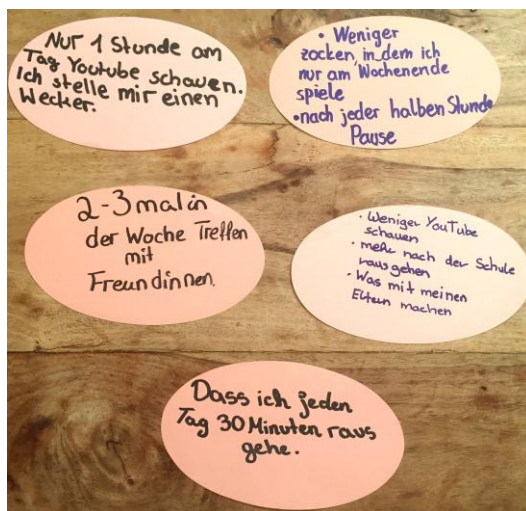 Nur 1 Stunde am
Tag Youtube schauen.
Ich stelle mir einen
Wecker.
• Weniger
zocken, in dem ich
nur am Wochenende
spiele
• nach jeder halben Stunde
Pause
2-3 mal in
der Woche Treffen
mit
Freundinnen.
• Weniger YouTube
schauen
• mehr nach der Schule
rausgehen
• Was mit meinen
Eltern machen
Dass ich jeden
Tag 30 Minuten raus
gehe.